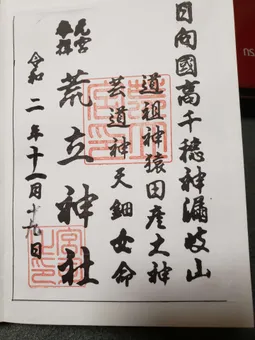 日向國高千穂神漏岐山
道祖神猿田彦大神
芸道神天鈿女命
元宮
参拝
荒立神社
令和二年十一月十九日